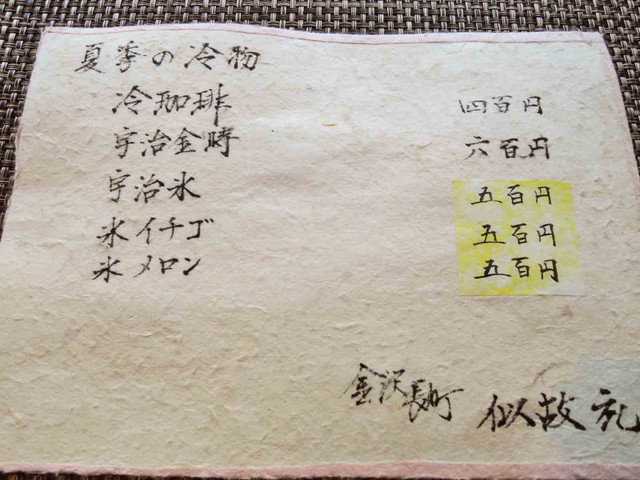 夏季の冷物
冷珈琲 四百円
宇治金時 六百円
宇治氷 五百円
氷イチゴ 五百円
氷メロン 五百円
金沢長町 似故礼